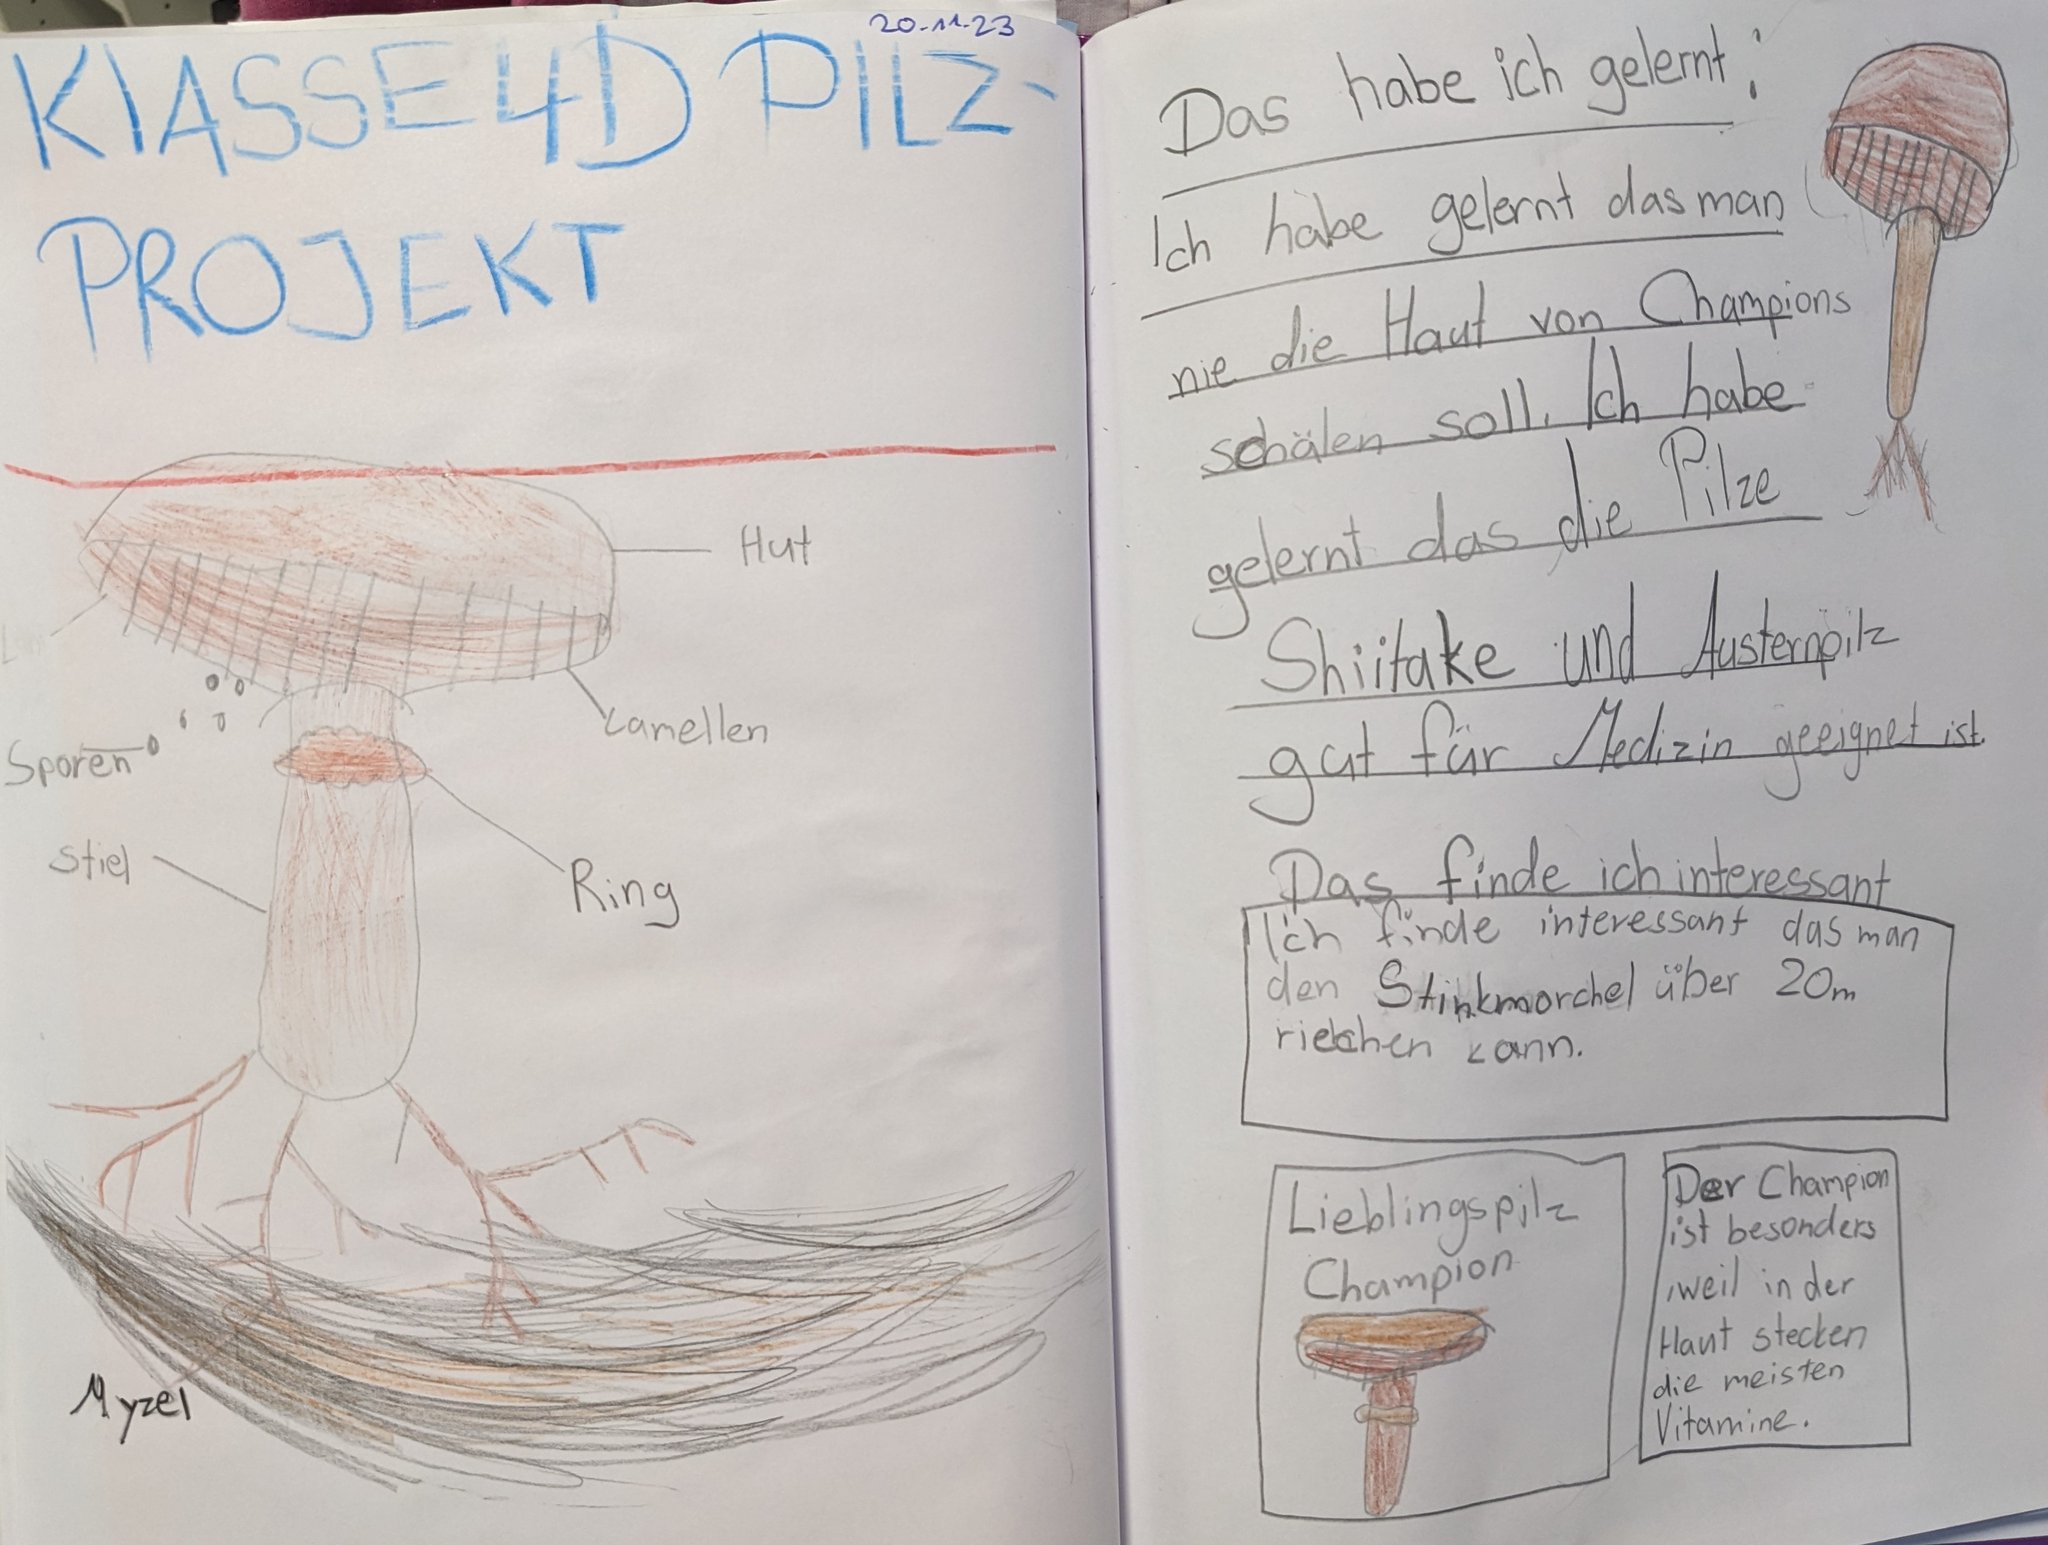 20-11-23
KLASSE 4D PILZ-
PROJEKT
Hut
Lamellen
Sporen
Stiel
Ring
Myzel
Das habe ich gelernt:
Ich habe gelernt das man
nie die Haut von Champions
schälen soll. Ich habe
gelernt das die Pilze
Shiitake und Austernpilz
gut für Medizin geeignet ist.
Das finde ich interessant
Ich finde interessant das man
den Stinkmorchel über 20m
riechen kann.
Lieblingspilz
Champion
Der Champion
ist besonders
,weil in der
Haut stecken
die meisten
Vitamine.